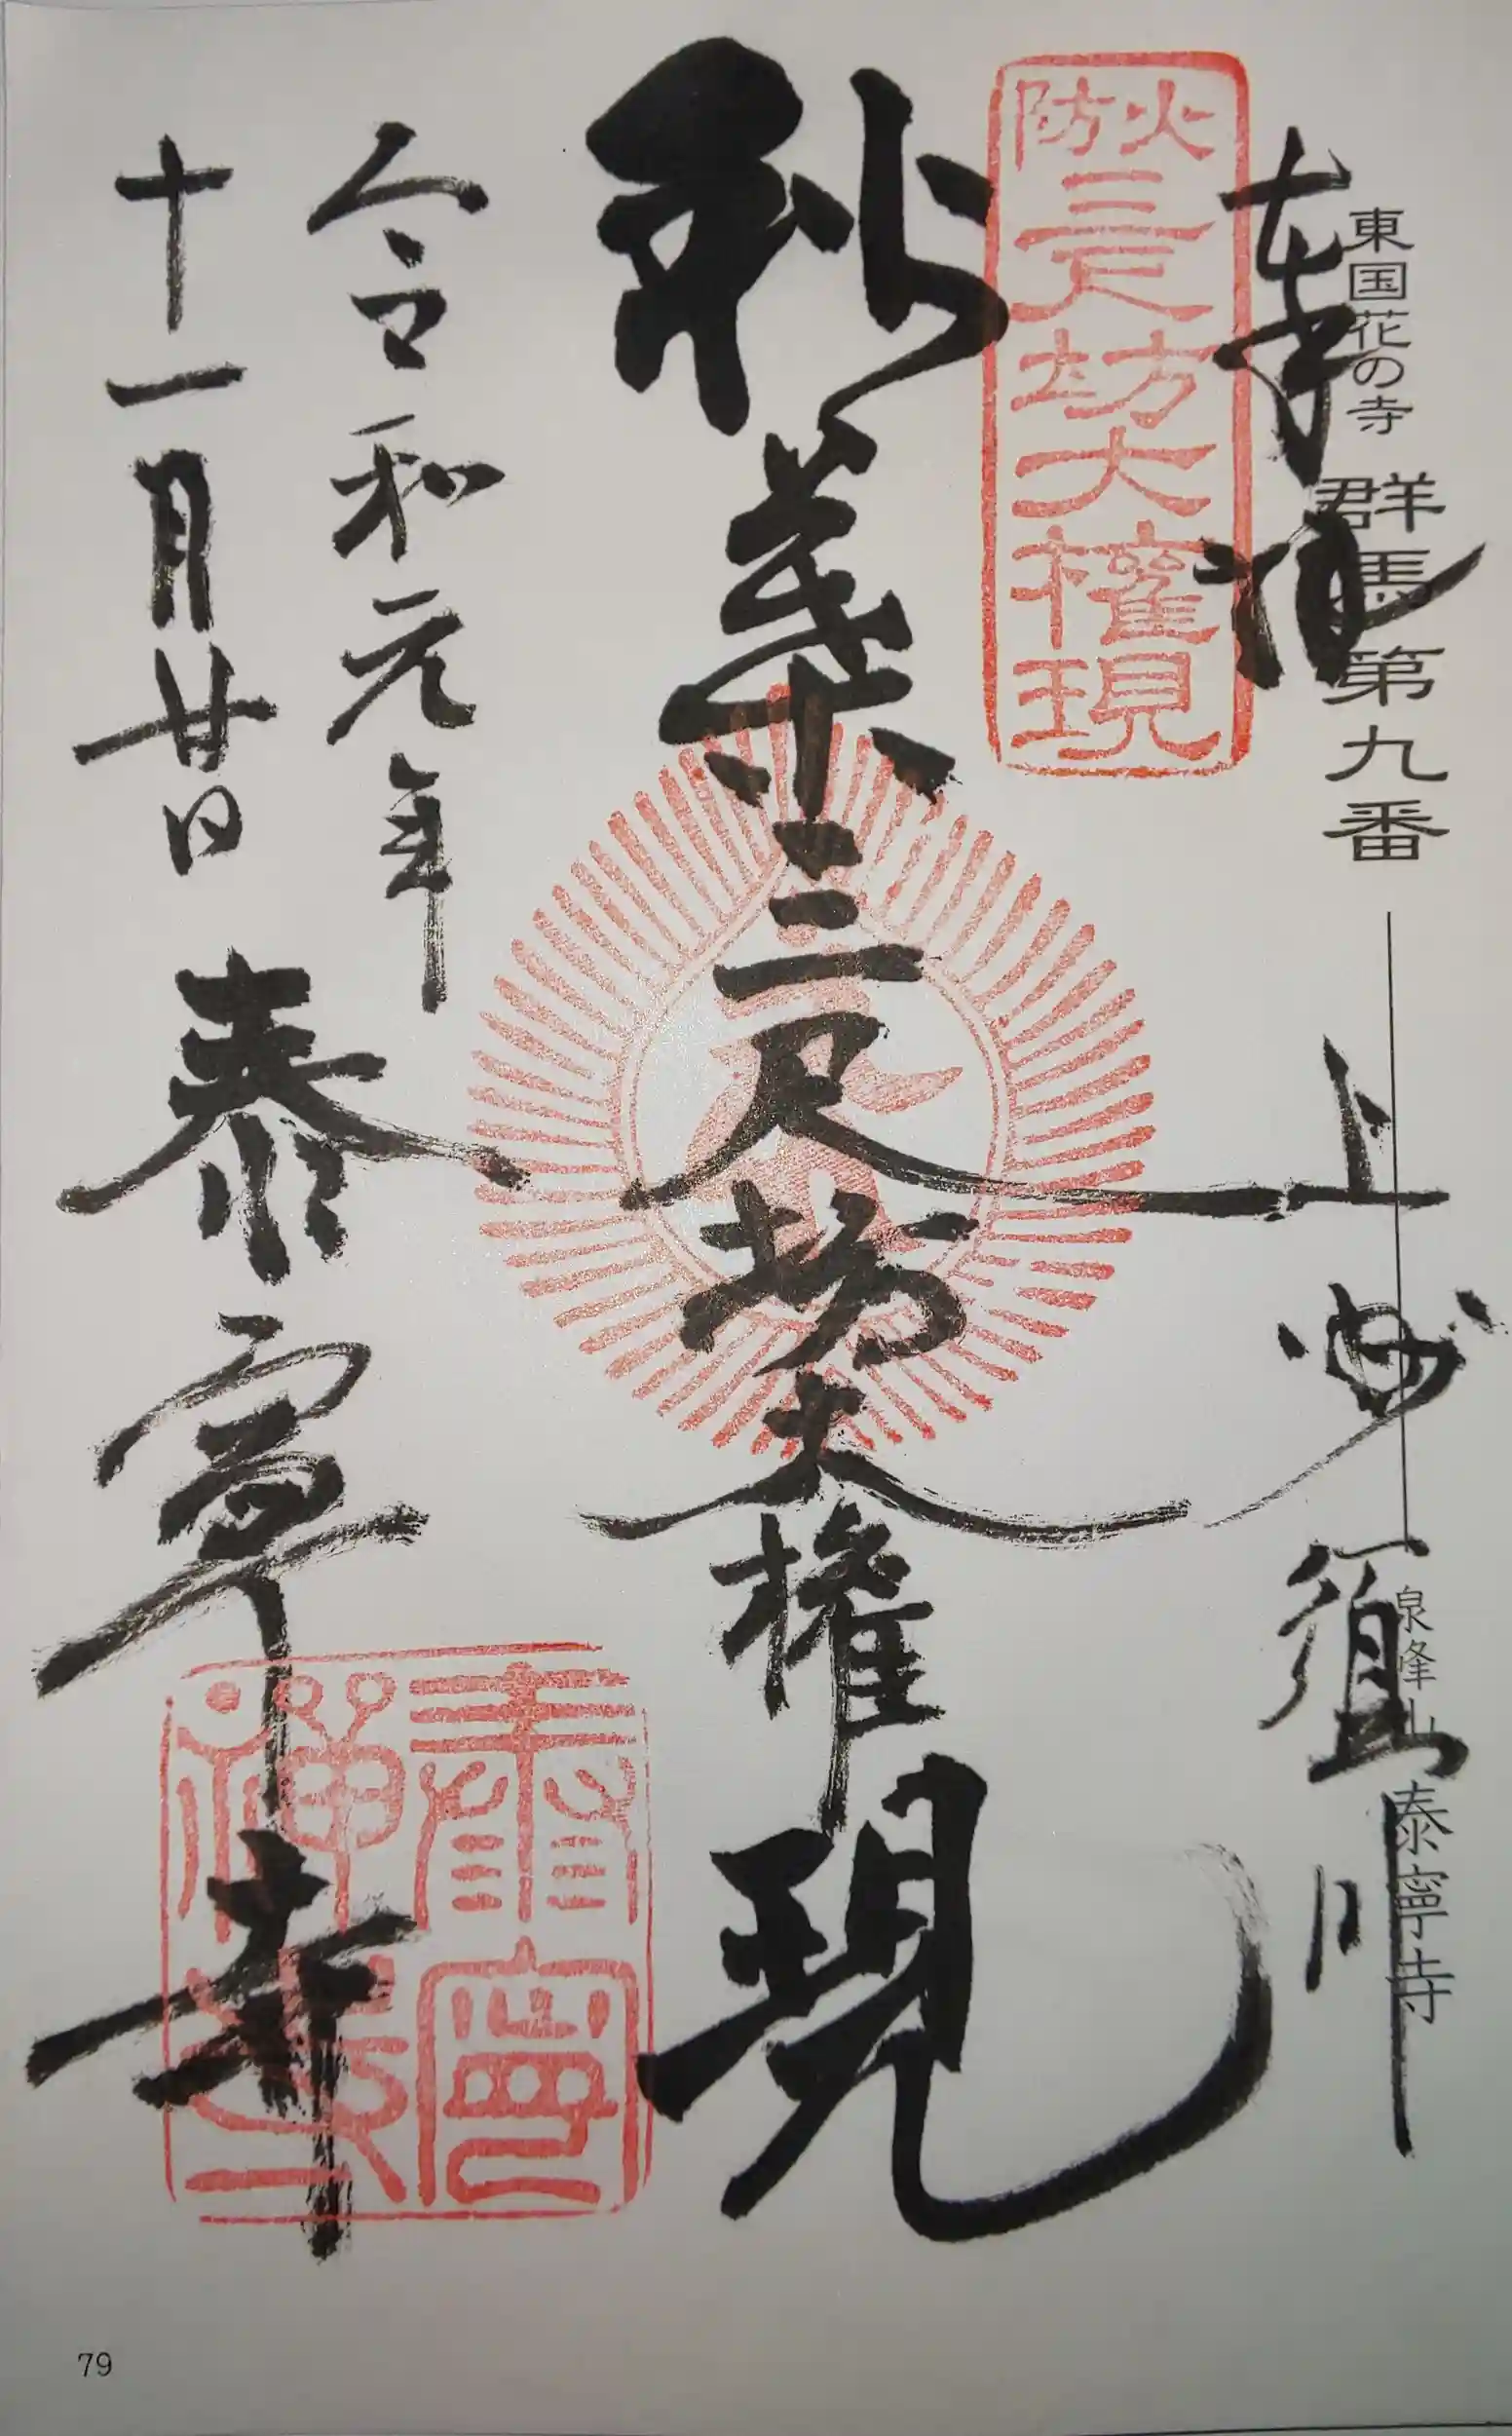 東国花の寺 群馬第九番 泉峰山 泰寧寺
奉拝 上州 須川
火防 三尺坊大権現
秋葉三尺坊大権現
令和元年
十一月廿日 泰寧寺
泰寧禅寺
79